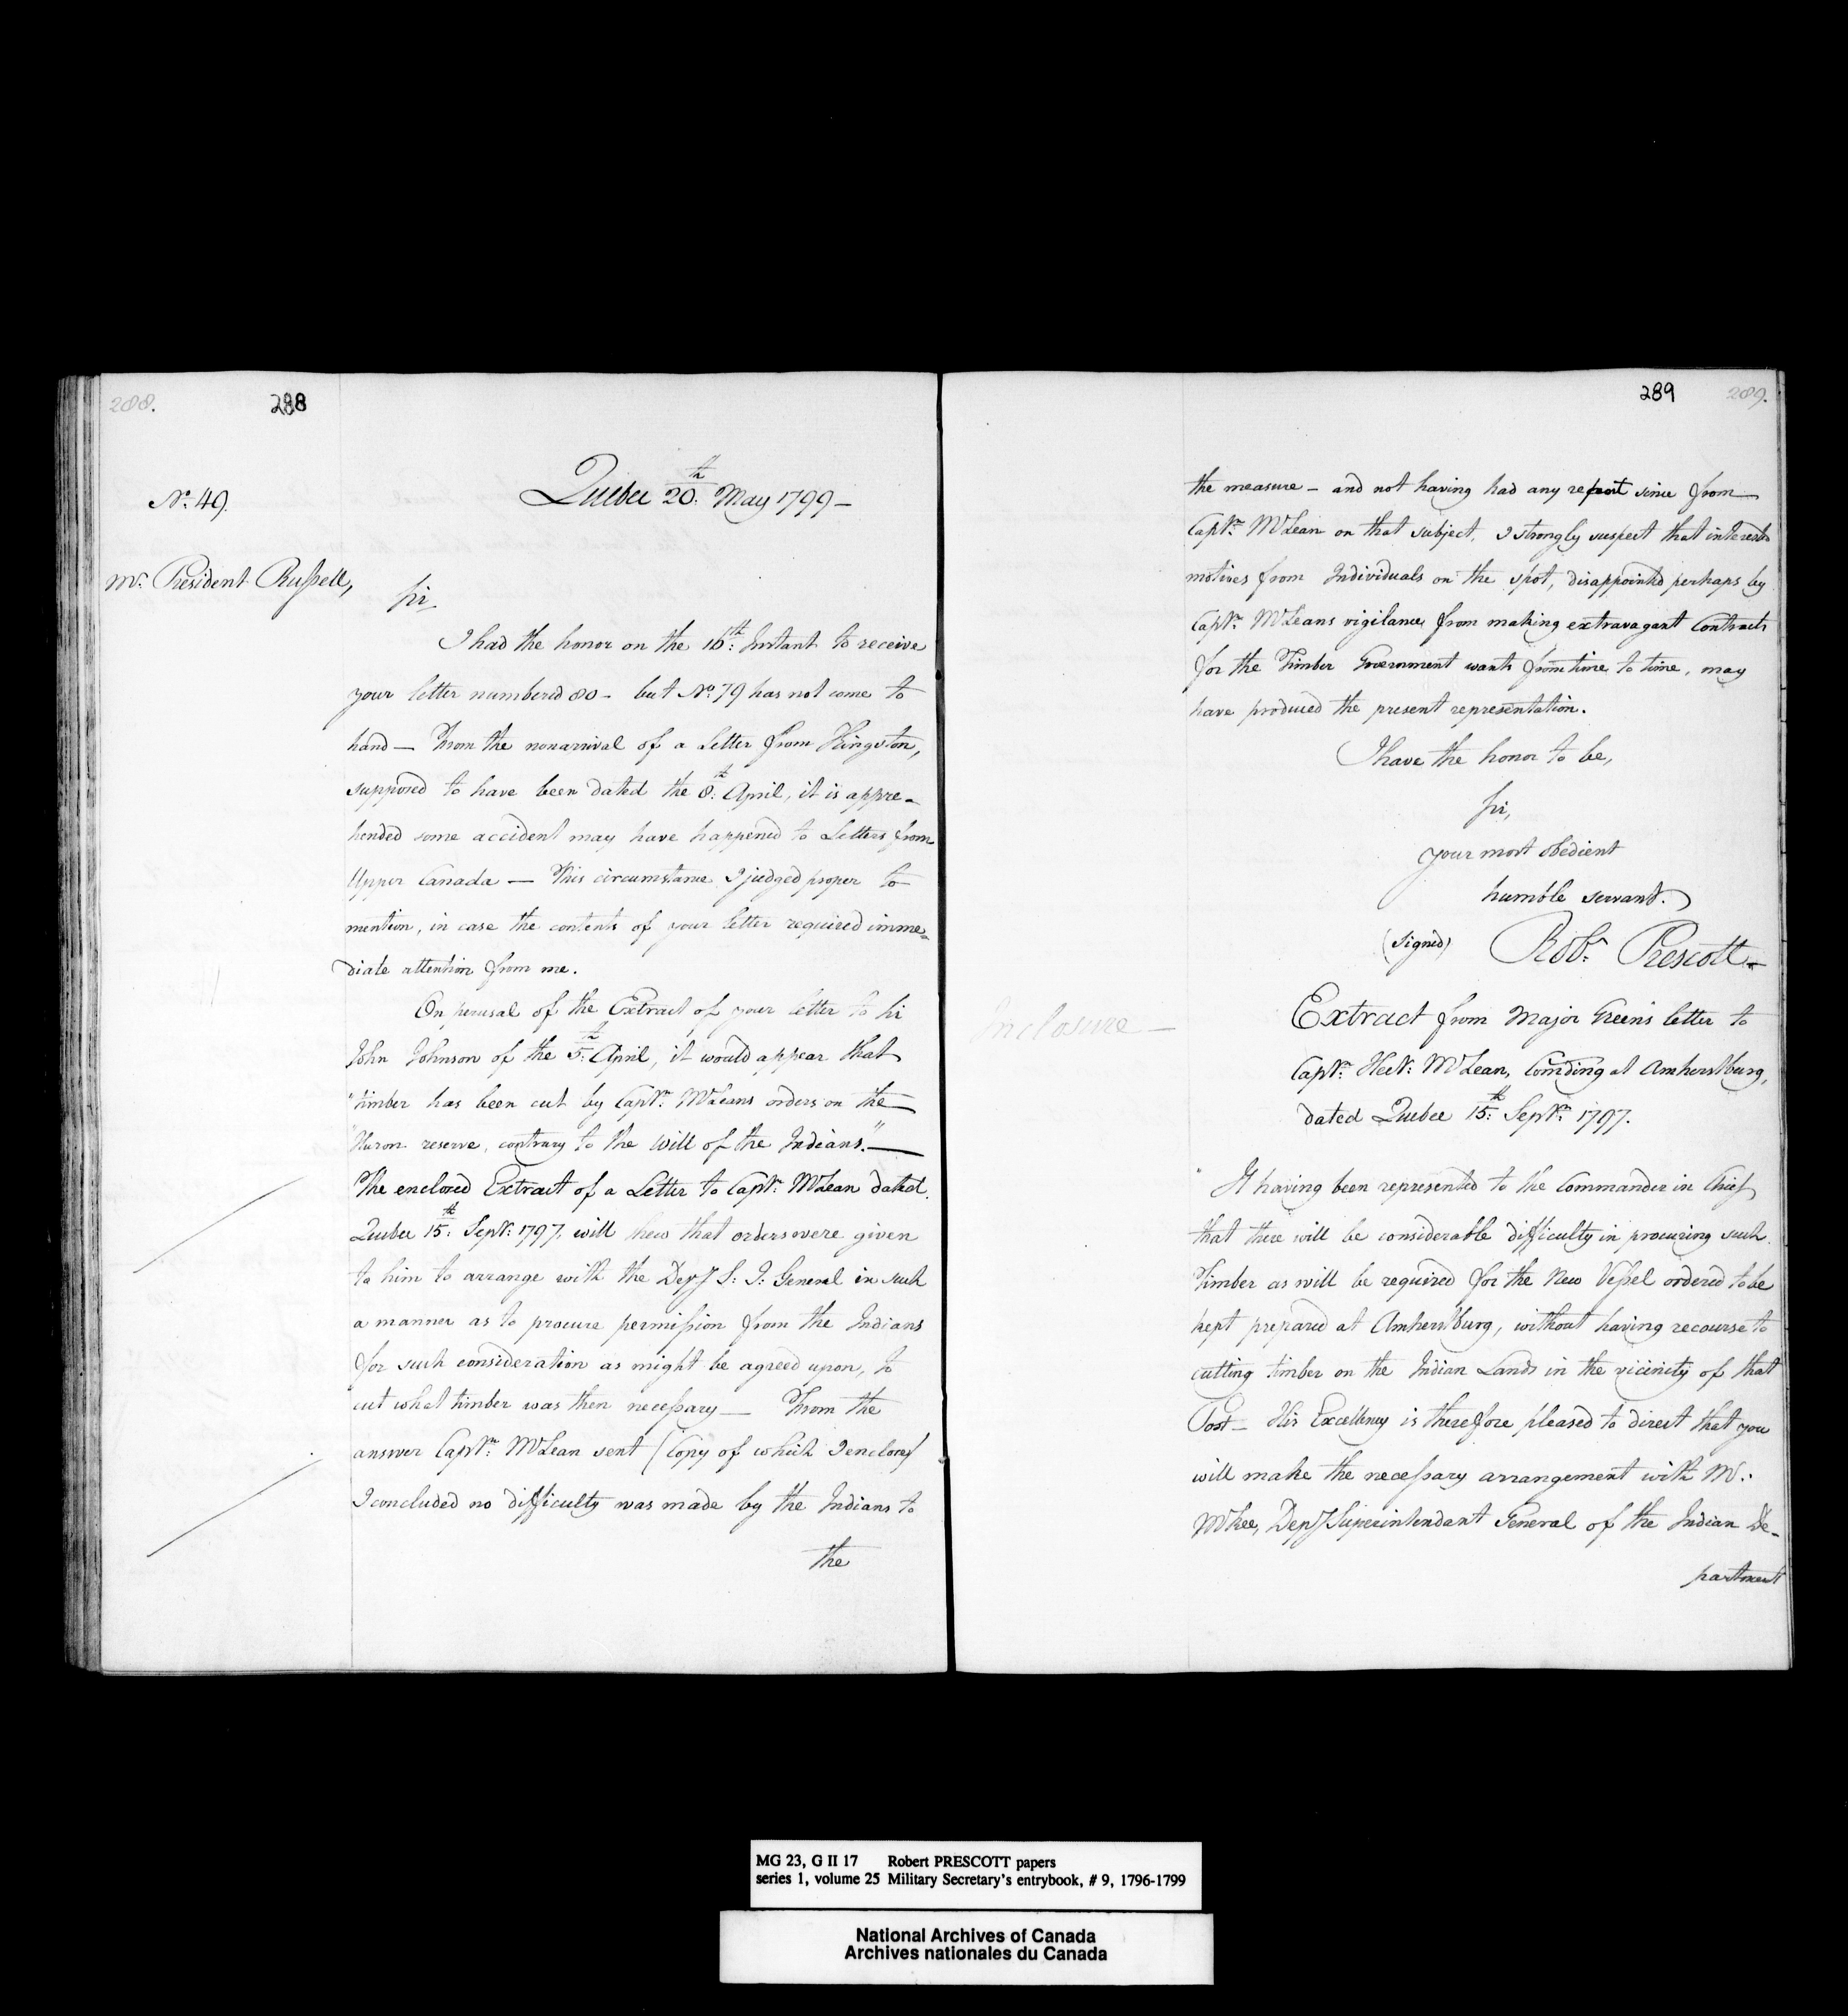 288.
288
Quebec 20th May 1799 —
No. 49.
Mr. President Russell,
Sir
I had the honor on the 16th: Instant to receive
your letter numbered 80 – but No. 79 has not come to
hand — From the nonarrival of a Letter from Kingston,
supposed to have been dated the 8th: April, it is appre-
hended some accident may have happened to Letters from
Upper Canada — This circumstance I judged proper to
mention, in case the contents of your letter required imme-
diate attention from me.
On perusal of the Extract of your letter to Sir
John Johnson of the 5th: April, it would appear that
"timber has been cut by Captn. McLeans orders on the
"Huron reserve, contrary to the Will of the Indians." —
The enclosed Extract of a Letter to Captn. McLean dated
Quebec 15th: Septr: 1797, will shew that orders were given
to him to arrange with the Depy S: I: General in such
a manner as to procure permission from the Indians
for such consideration as might be agreed upon, to
cut what timber was then necessary — From the
answer Captn: McLean sent (Copy of which I enclose)
I concluded no difficulty was made by the Indians to
the
289
289.
the measure – and not having had any report since from
Captn. McLean on that subject, I strongly suspect that interested
motives from Individuals on the spot, disappointed perhaps by
Captn. McLeans vigilance, from making extravagant Contracts
for the Timber Government wants from time to time, may
have produced the present representation.
I have the honor to be,
Sir,
your most obedient
humble servant.
(Signed) Robt. Prescott –
Inclosure —
Extract from Major Green's letter to
Captn. Hectr: McLean, Comding at Amherstburg,
dated Quebec 15th: Septr. 1797.
"It having been represented to the Commander in Chief
that there will be considerable difficulty in procuring such
Timber as will be required for the New Vessel ordered to be
kept prepared at Amherstburg, without having recourse to
cutting timber on the Indian Lands in the vicinity of that
Post – His Excellency is therefore pleased to direct that you
will make the necessary arrangement with Mr.
McKee, Depy Superintendant General of the Indian De-
partment
MG 23, G II 17 Robert PRESCOTT papers
series 1, volume 25 Military Secretary's entrybook, # 9, 1796-1799
National Archives of Canada
Archives nationales du Canada